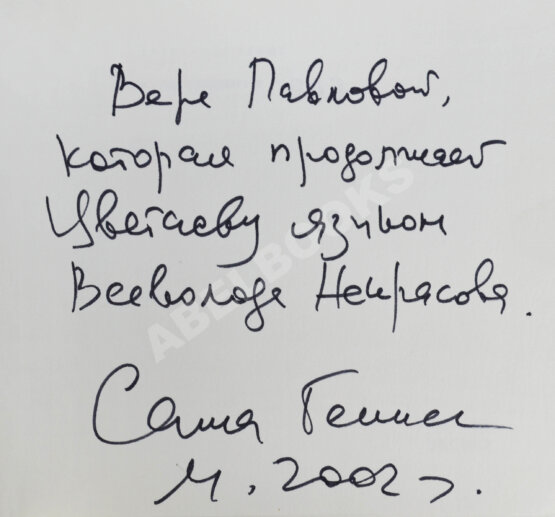 Вере Павловой,
которая продолжает
Цветаеву языком
Всеволода Некрасова.
ABELBOOKS
Саша Генис
М. 2002 г.